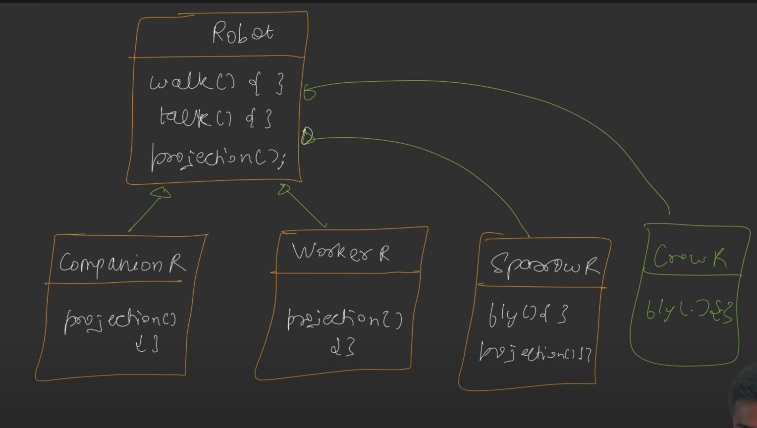 Robot
walk() { }
talk() { }
projection();
Companion R
projection()
{ }
Worker R
projection()
{ }
Sparrow R
fly() { }
projection() { }
Crow R
fly() { }